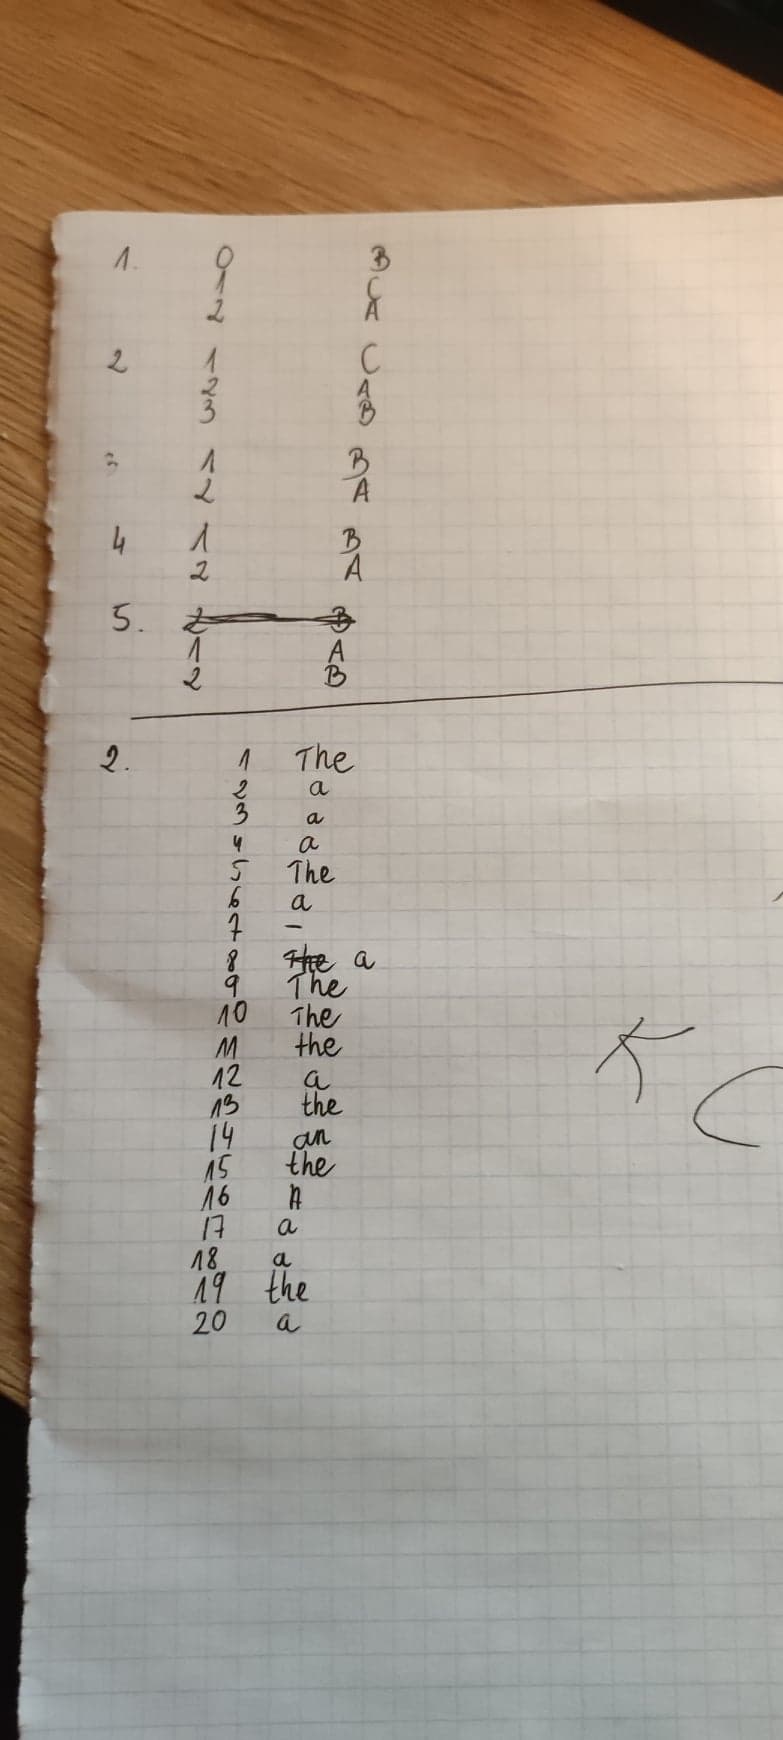 1. 0 B
1 C
2 A
2 1 C
2 A
3 B
3 1 B
2 A
4 1 B
2 A
5. 2 B
1 A
2 B
2. 1 The
2 a
3 a
4 a
5 The
6 a
7 -
8 The a
9 The
10 The
11 the
12 a
13 the
14 an
15 the
16 A
17 a
18 a
19 the
20 a